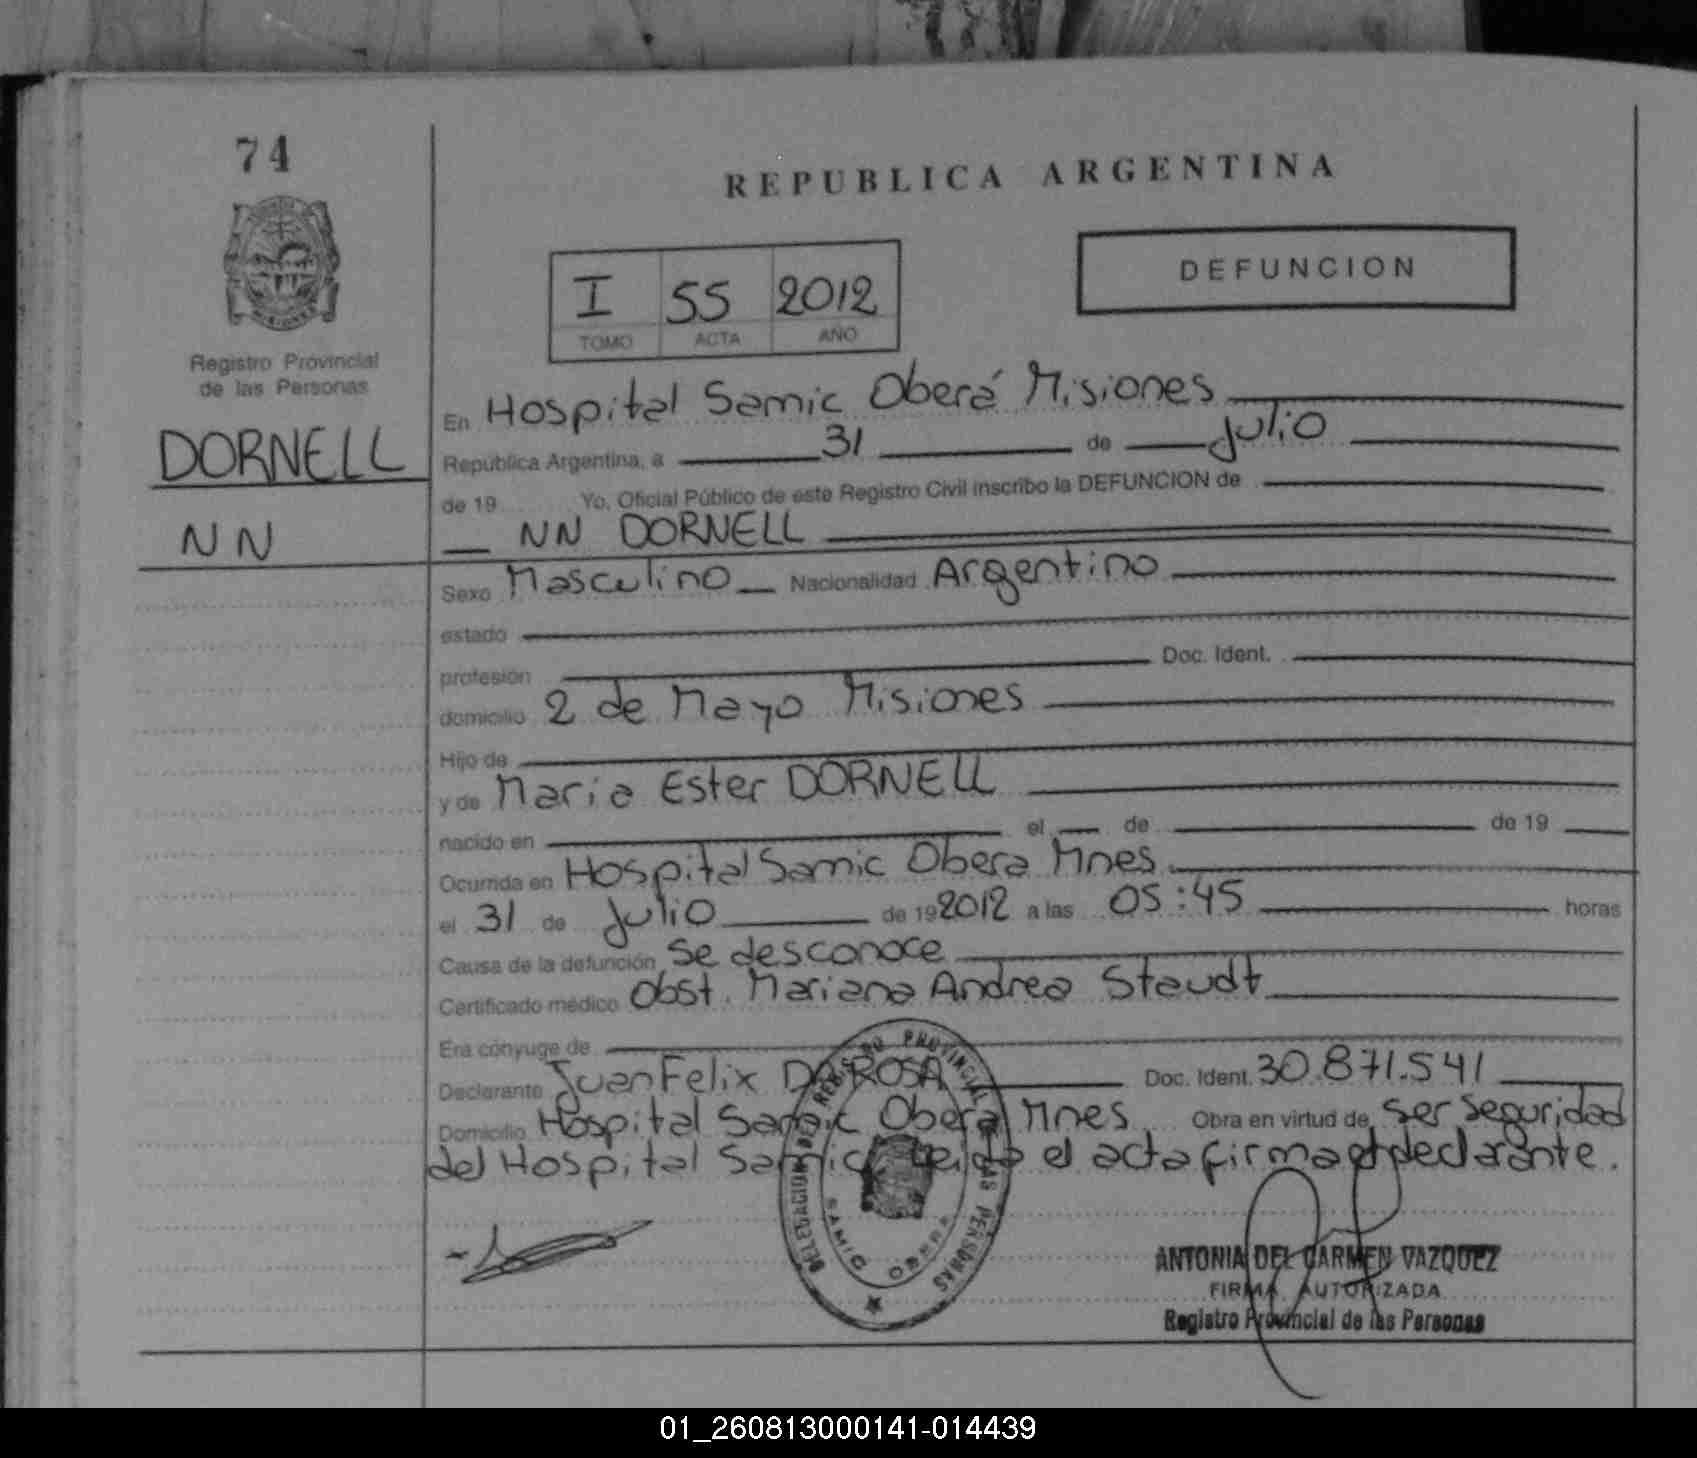 74
REPUBLICA ARGENTINA
DEFUNCION
I 55 2012
TOMO ACTA AÑO
MISIONES
Registro Provincial
de las Personas
DORNELL
NN
En Hospital Samic Oberá Misiones
República Argentina, a 31 de Julio
de 19 Yo, Oficial Público de este Registro Civil inscribo la DEFUNCION de
NN DORNELL
Sexo Masculino Nacionalidad Argentino
estado
profesión Doc. Ident.
domicilio 2 de Mayo Misiones
Hijo de
y de Maria Ester DORNELL
nacido en el de de 19
Ocurrida en Hospital Samic Obera Mnes
el 31 de Julio de 19 2012 a las 05:45 horas
Causa de la defunción Se desconoce
Certificado médico Obst. Mariana Andrea Staudt
Era cónyuge de
Declarante Juan Felix DA ROSA Doc. Ident. 30.871.541
Domicilio Hospital Samic Obera Mnes Obra en virtud de ser seguridad
del Hospital Samic Leida el acta firma el declarante.
DELEGACION DEL REGISTRO PROVINCIAL DE LAS PERSONAS
SAMIC OBERA
ANTONIA DEL CARMEN VAZQUEZ
FIRMA AUTORIZADA
Registro Provincial de las Personas
01_260813000141-014439